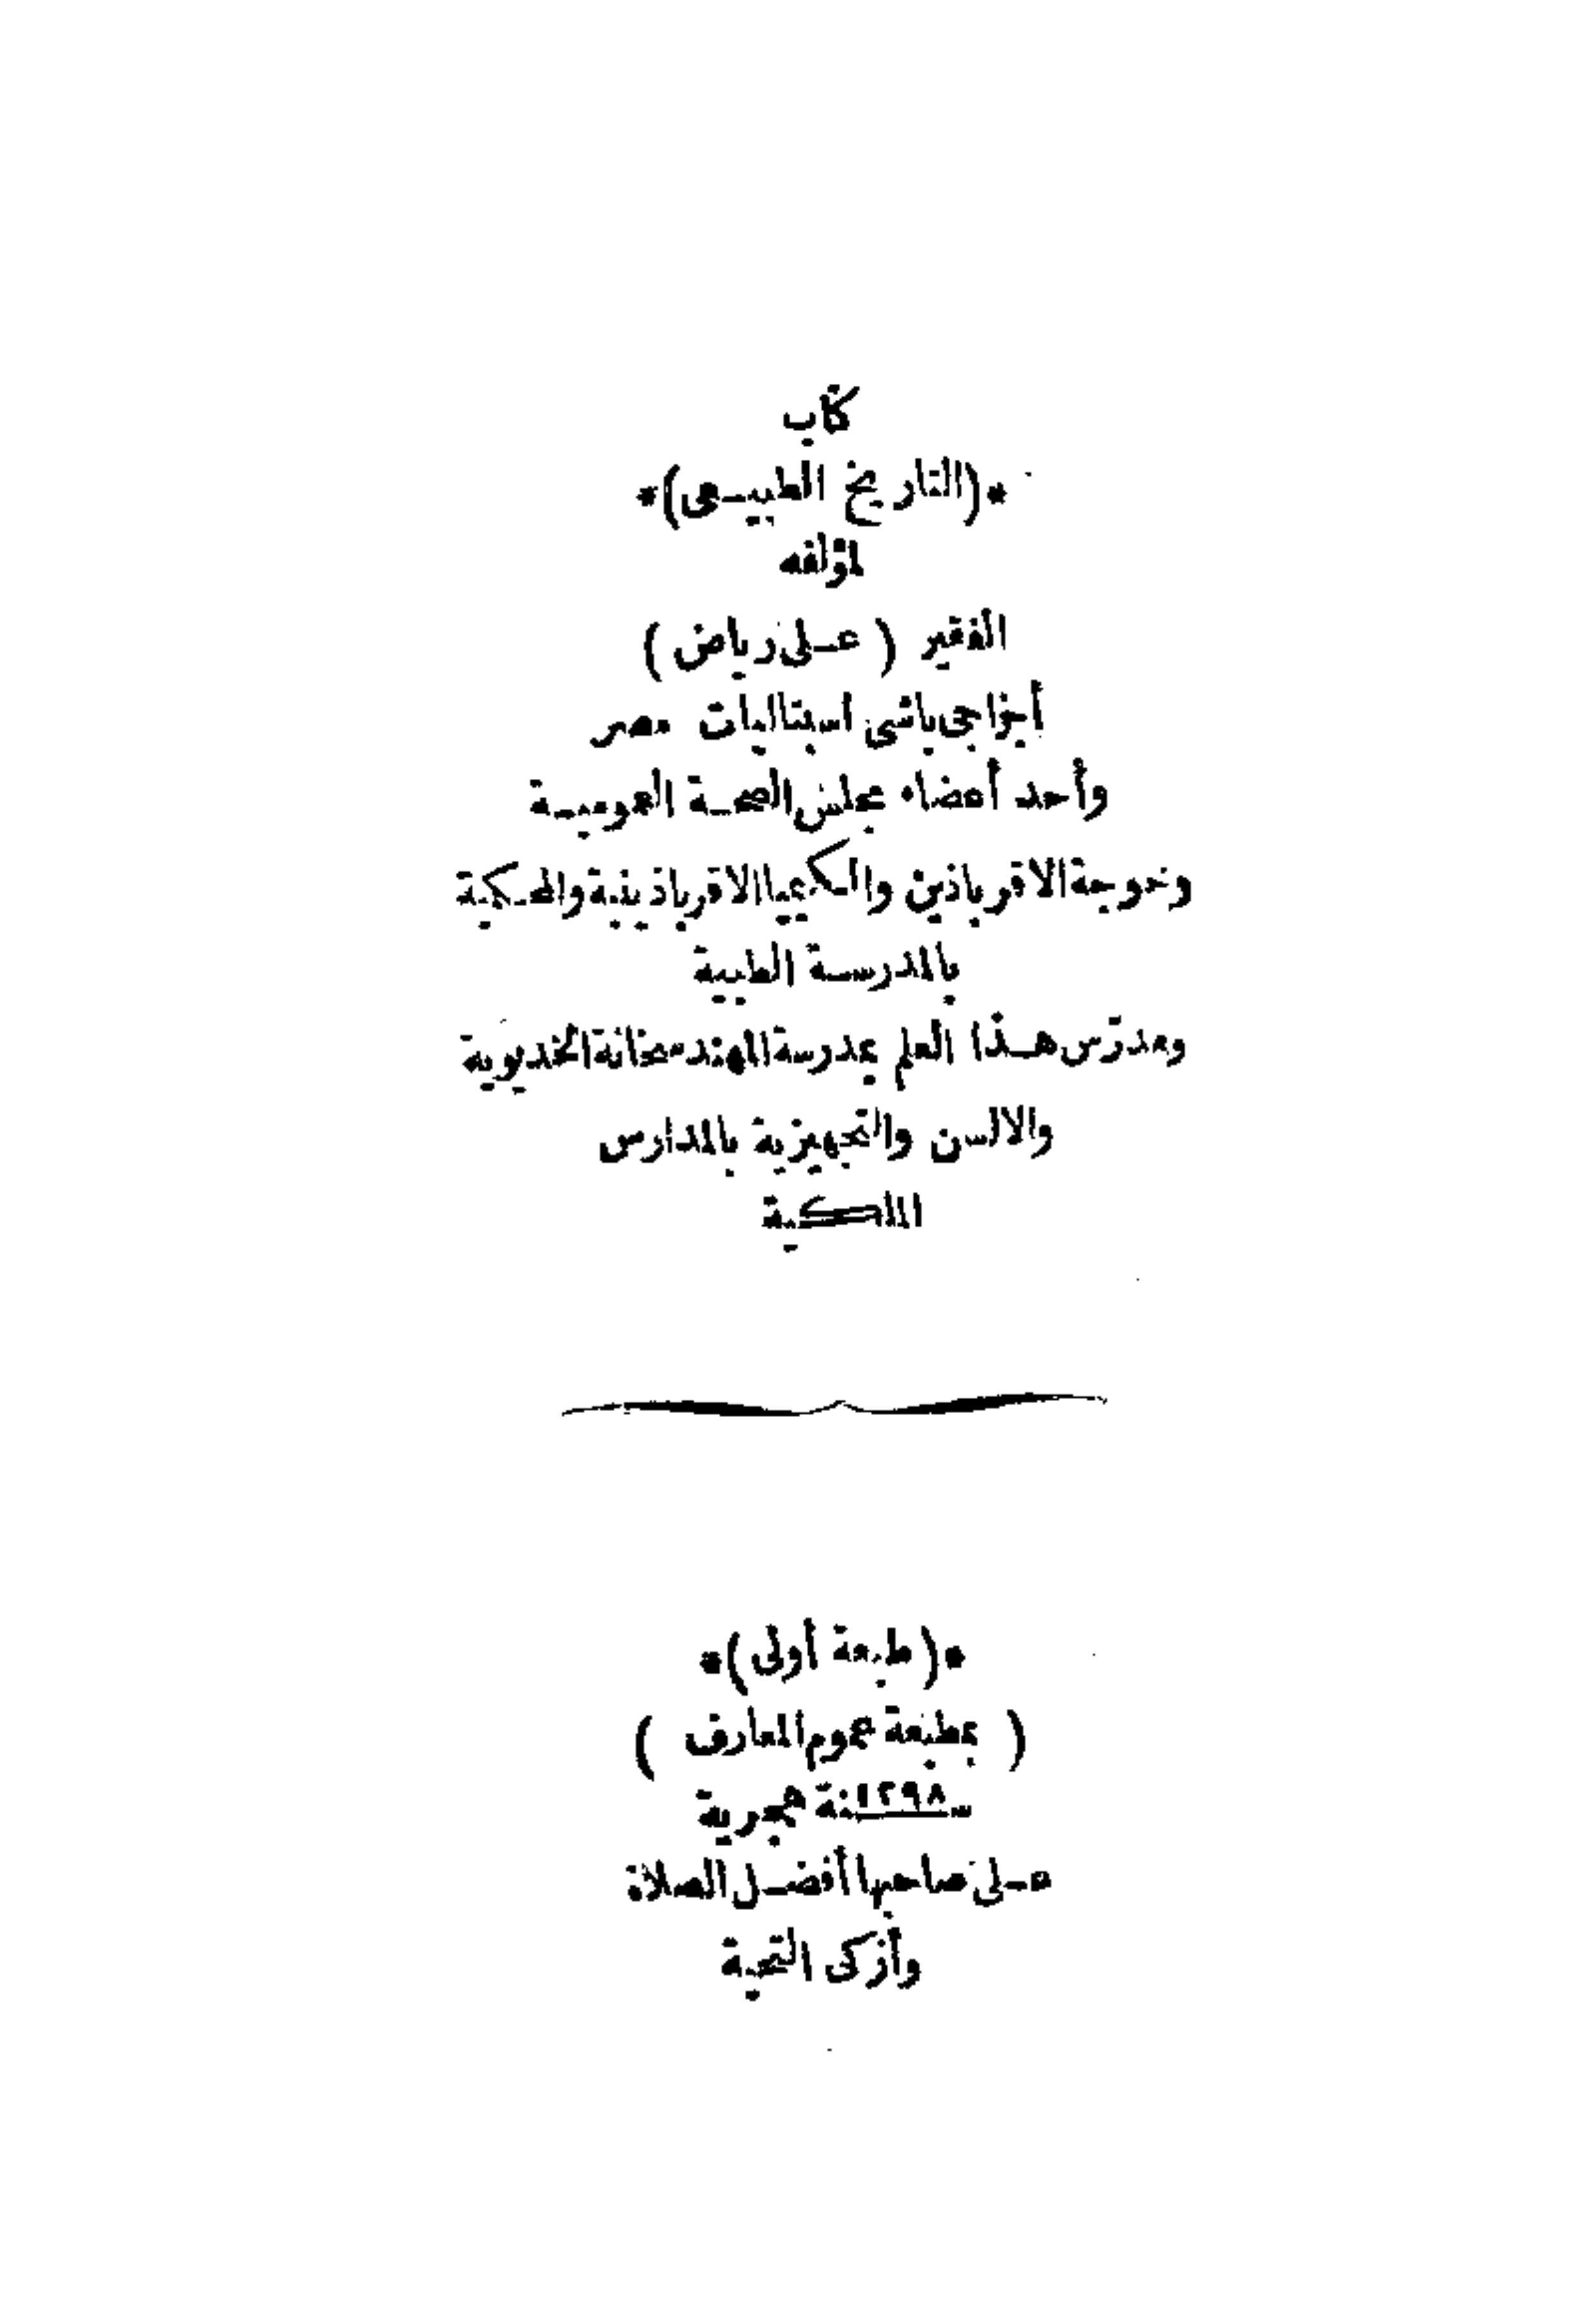 كتاب
*(التاريخ الطبيعى)*
لمؤلفه
الفقير ( على رياض )
أجزاجى باشى اسبتاليات مصر
وأحد أعضاء مجلس الصحة العمومية
وخوجة الاقرباذين والكيميا الاقرباذينية والمحكمية
بالمدرسة الطبية
ومدرّس هذا العلم بمدرسة المهندسخانة الخديوية
والالسن والتجهيزية بالمدارس
الملكية
*( طبعة أولى )*
( بمطبعة عموم المعارف )
سنة ١٢٩٨ هجرية
على صاحبها أفضل الصلاة
وأزكى التحية